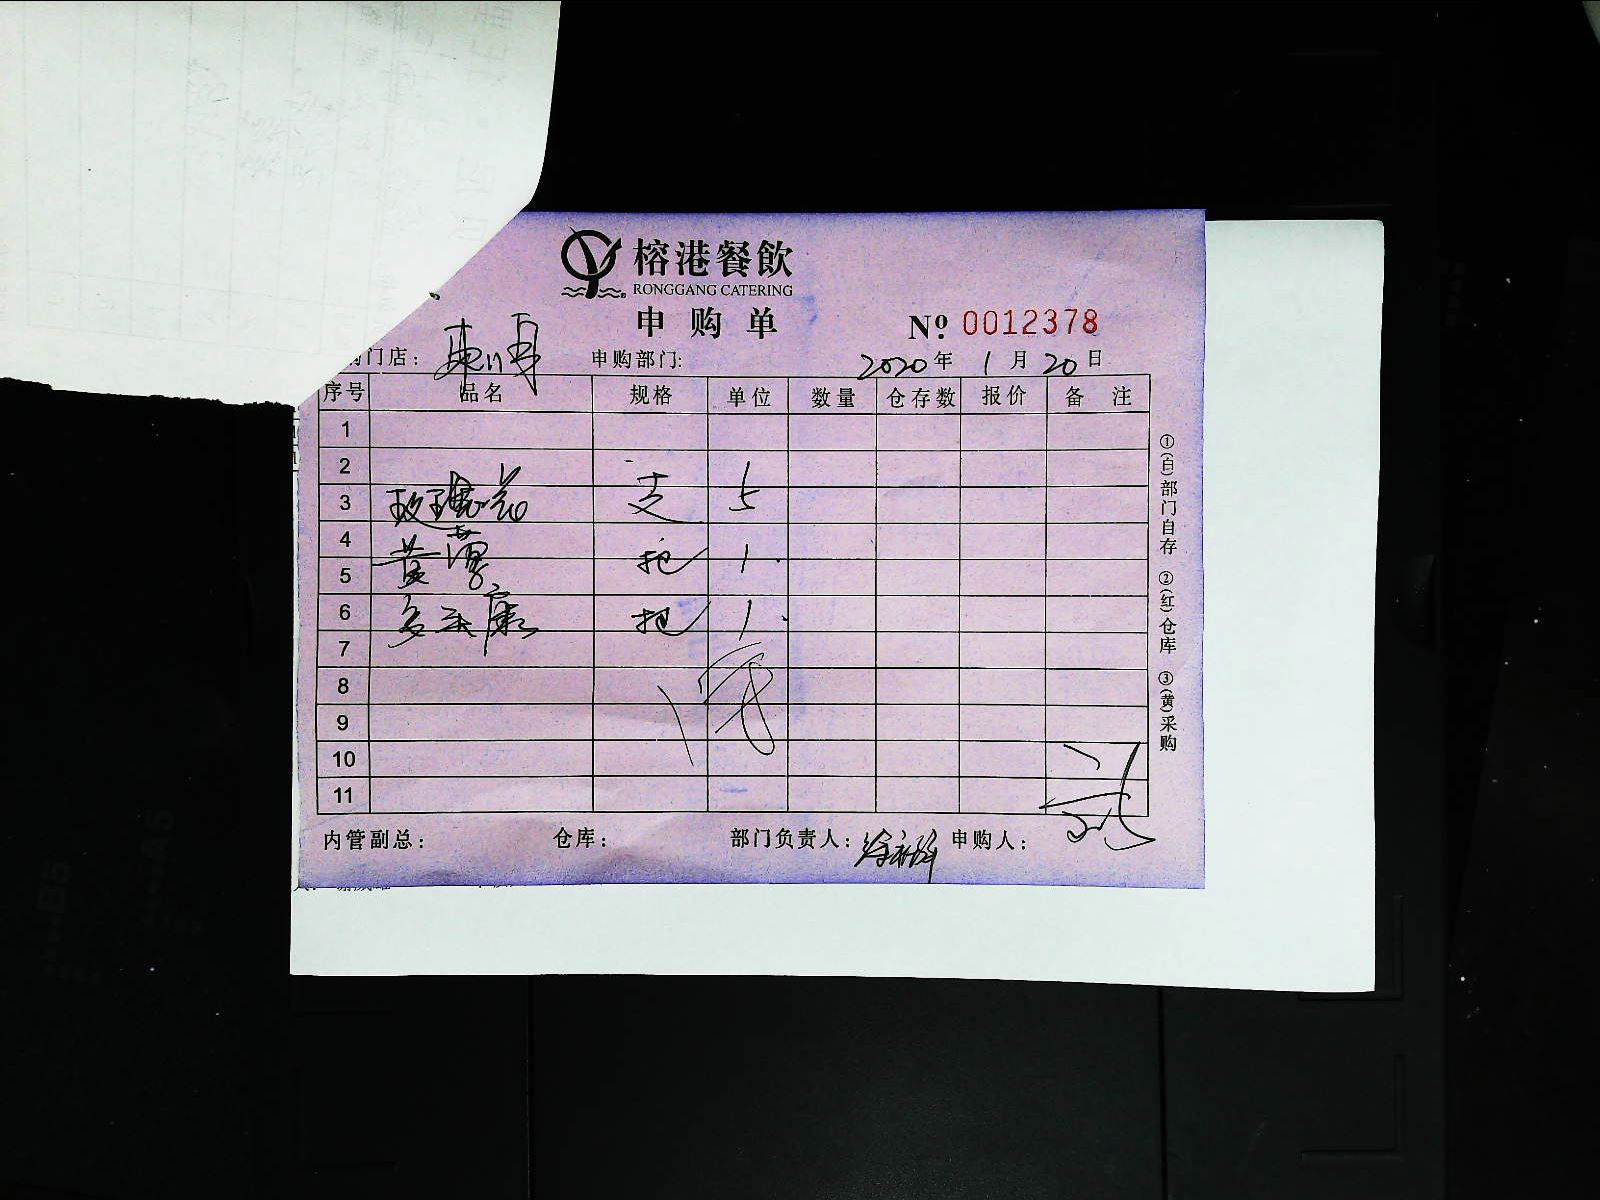 榕港餐飲
RONGGANG CATERING
申购单
Nº 0012378
门店： 申购部门: 2020年1月20日
序号 品名 规格 单位 数量 仓存数 报价 备注
1
2
3 玫瑰花 支 5
4
5 黄莺 把 1
6 多头康 把 1
7
8
9
10
11
内管副总： 仓库： 部门负责人： 申购人：
①(白)部门自存 ②(红)仓库 ③(黄)采购